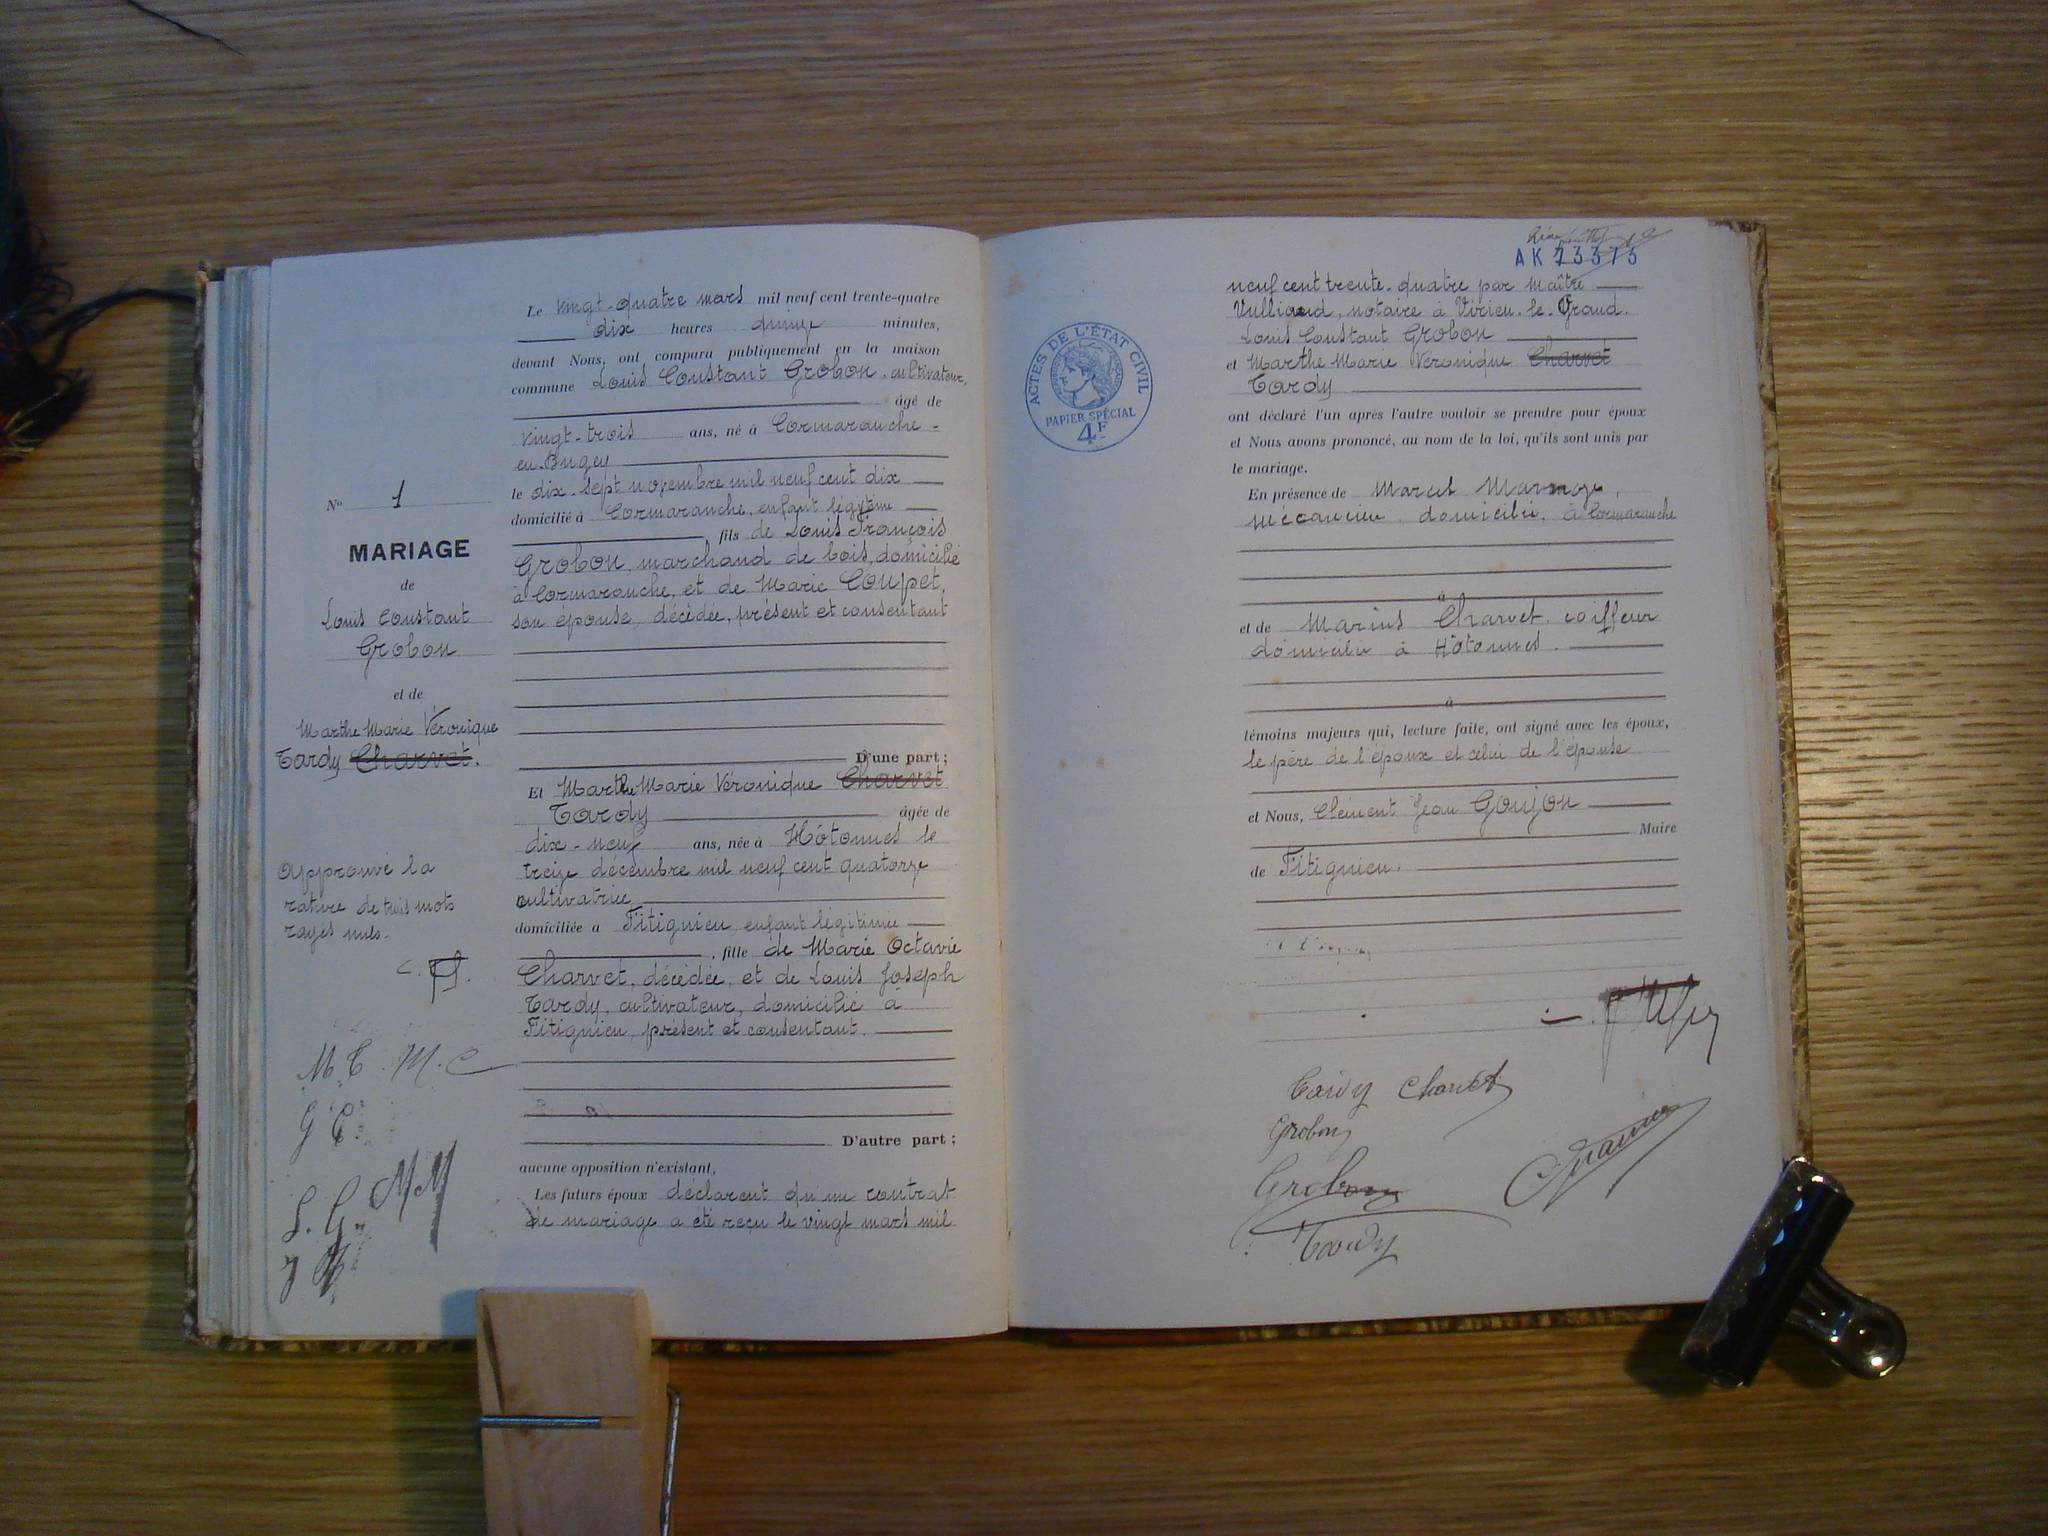 N° 1
MARIAGE
de
Louis Constant
Grobon
et de
Marthe Marie Véronique
Tardy Charvet.
Approuvé la
rature de trois mots
rayés nuls.
M T. M. C
G C.
L. G. M M
Le vingt-quatre mars mil neuf cent trente-quatre
dix heures quinze minutes,
devant Nous, ont comparu publiquement en la maison
commune Louis Constant Grobon, cultivateur,
âgé de
vingt-trois ans, né à Cormaranche-
en-Bugey
le dix-sept novembre mil neuf cent dix
domicilié à Cormaranche, enfant légitime
, fils de Louis François
Grobon, marchand de bois, domicilié
à Cormaranche, et de Marie Coupet,
son épouse, décédée, présent et consentant
D'une part ;
Et Marthe Marie Véronique Charvet
Tardy âgée de
dix-neuf ans, née à Hotonnes le
treize décembre mil neuf cent quatorze
cultivatrice
domiciliée à Fitignieu enfant légitime
, fille de Marie Octavie
Charvet, décédée, et de Louis Joseph
Tardy, cultivateur, domicilié à
Fitignieu, présent et consentant.
D'autre part ;
aucune opposition n'existant,
Les futurs époux déclarent qu'un contrat
de mariage a été reçu le vingt mars mil
AK 23373
ACTES DE L'ÉTAT CIVIL
PAPIER SPÉCIAL
4F
neuf cent trente-quatre par Maître
Vulliand, notaire à Virieu-le-Grand.
Louis Constant Grobon
et Marthe Marie Véronique Charvet
Tardy
ont déclaré l'un après l'autre vouloir se prendre pour époux
et Nous avons prononcé, au nom de la loi, qu'ils sont unis par
le mariage.
En présence de Marcel
mécanicien domicilié, à Cormaranche
à
et de Marius Charvet, coiffeur
domicilié à Hotonnes.
à
témoins majeurs qui, lecture faite, ont signé avec les époux,
le père de l'époux et celui de l'épouse
et Nous, Clément Jean Goujon
Maire
de Fitignieu.
Tardy Charvet
Grobon
Grobon
Tardy